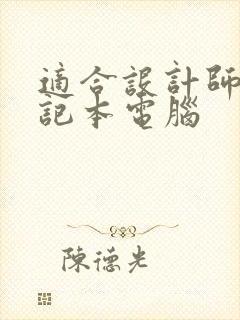 適合設計師
記本電腦
陳德光